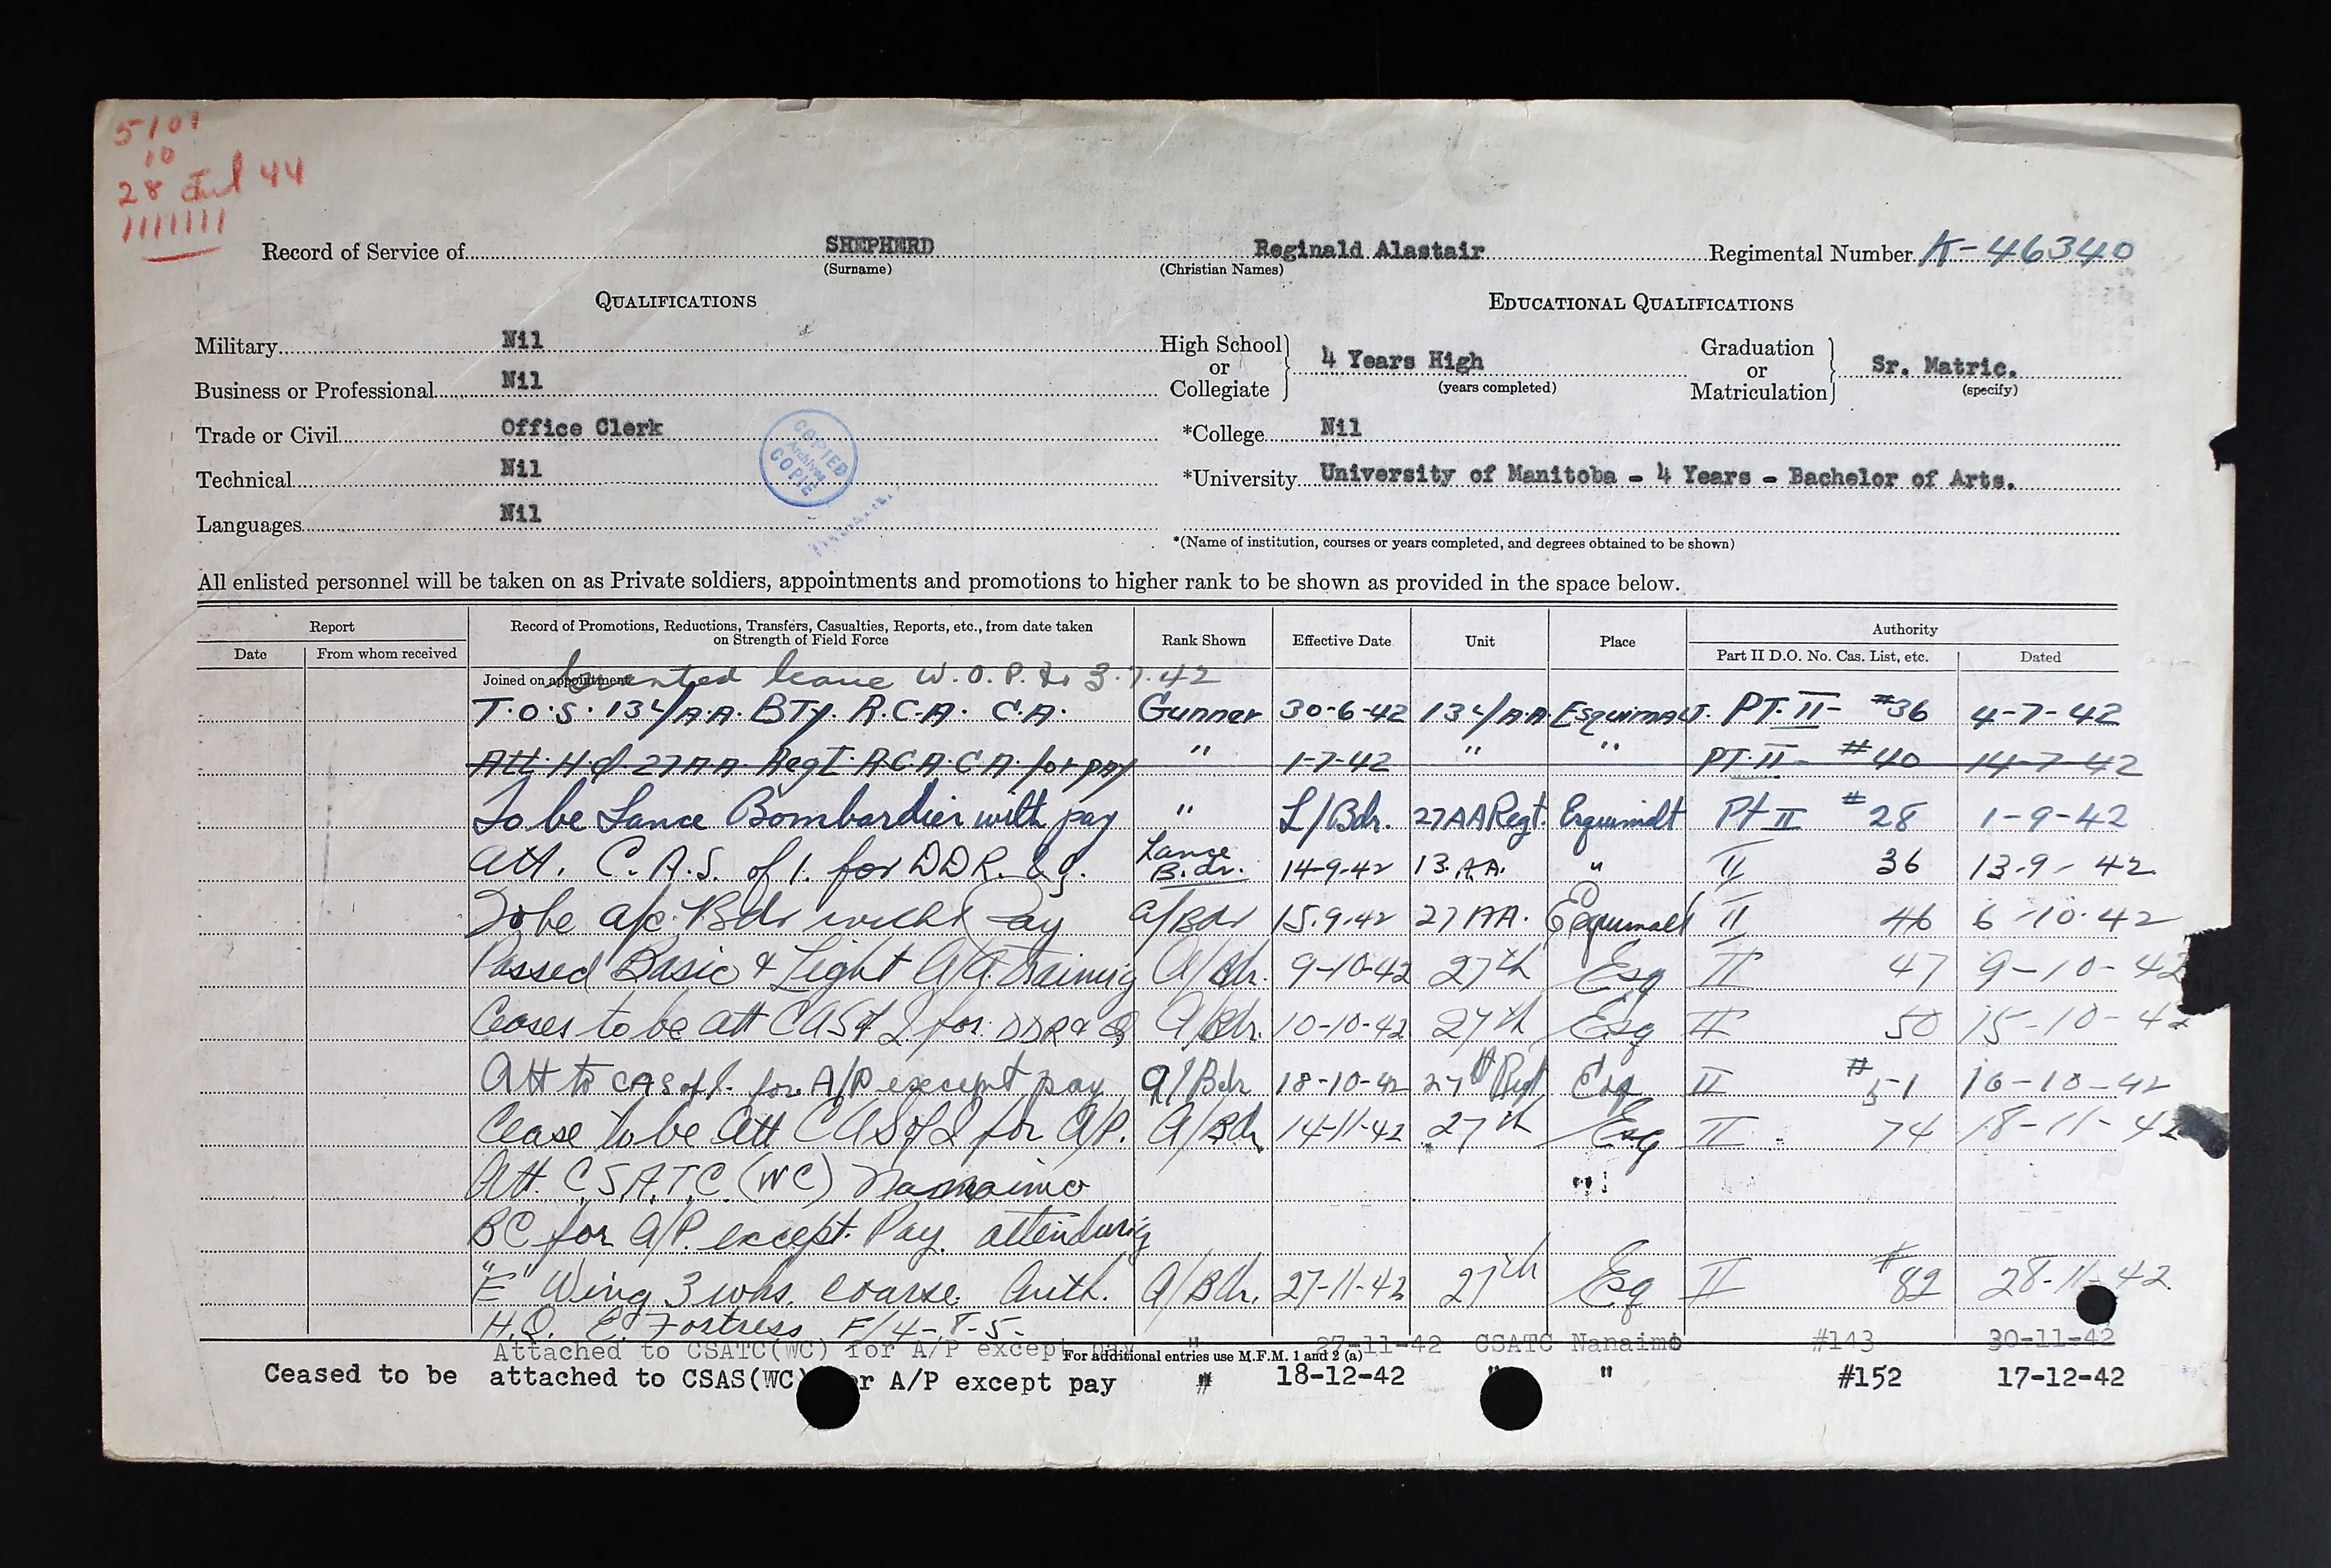 5101
10
28 Jul 44
Record of Service of SHEPHERD Reginald Alastair Regimental Number K-46340
(Surname) (Christian Names)
QUALIFICATIONS EDUCATIONAL QUALIFICATIONS
Military Nil High School or Collegiate 4 Years High (years completed) Graduation or Matriculation Sr. Matric. (specify)
Business or Professional Nil
Trade or Civil Office Clerk *College Nil
COPIED Archives COPIE
Technical Nil *University University of Manitoba - 4 Years - Bachelor of Arts.
Languages Nil
*(Name of institution, courses or years completed, and degrees obtained to be shown)
All enlisted personnel will be taken on as Private soldiers, appointments and promotions to higher rank to be shown as provided in the space below.
Report Record of Promotions, Reductions, Transfers, Casualties, Reports, etc., from date taken on Strength of Field Force Rank Shown Effective Date Unit Place Authority
Date From whom received Part II D.O. No. Cas. List, etc. Dated
Joined on appointment Granted leave W.O.P. to 3.7.42
T.O.S. 13 L/A.A. BTy. R.C.A. C.A. Gunner 30-6-42 13 L/A.A. Esquimalt. PT. II- #36 4-7-42
Att. H.Q 27 A.A. Regt. R.C.A. C.A. for pay " 1-7-42 " " PT. II- #40 14-7-42
To be Lance Bombardier with pay " L/Bdr. 27 AA Regt. Esquimalt Pt II #28 1-9-42
Att. C.A.S. of I. for DDR. & G. Lance B.dr. 14-9-42 13.A.A. " II 36 13.9-42
To be a/c Bdr with Pay a/Bdr 15.9.42 27 AA. Esquimalt II 46 6-10-42
Passed Basic & Light A/A Training A/Bdr. 9-10-42 27th Esq II 47 9-10-42
Ceases to be att CAS of I for DDR & G A/Bdr. 10-10-42 27th Esq II 50 15-10-42
Att to CAS of I. for A/P except pay a/Bdr 18-10-42 27th Regt Esq II #51 16-10-42
Cease to be Att CAS of I for A/P. A/Bdr 14-11-42 27th Esq II 74 18-11-42
Att. C.S.A.T.C. (WC) Nanaimo "
BC for A/P. except Pay. attending
"E" Wing 3 wks. coarse. Auth. A/Bdr. 27-11-42 27th Esq II #82 28-11-42
H.Q. E. Fortress F/4-8-5-
Attached to CSATC(WC) for A/P except pay " 27-11-42 CSATC Nanaimo #143 30-11-42
For additional entries use M.F.M. 1 and 2 (a)
Ceased to be attached to CSAS(WC) for A/P except pay " 18-12-42 " " #152 17-12-42